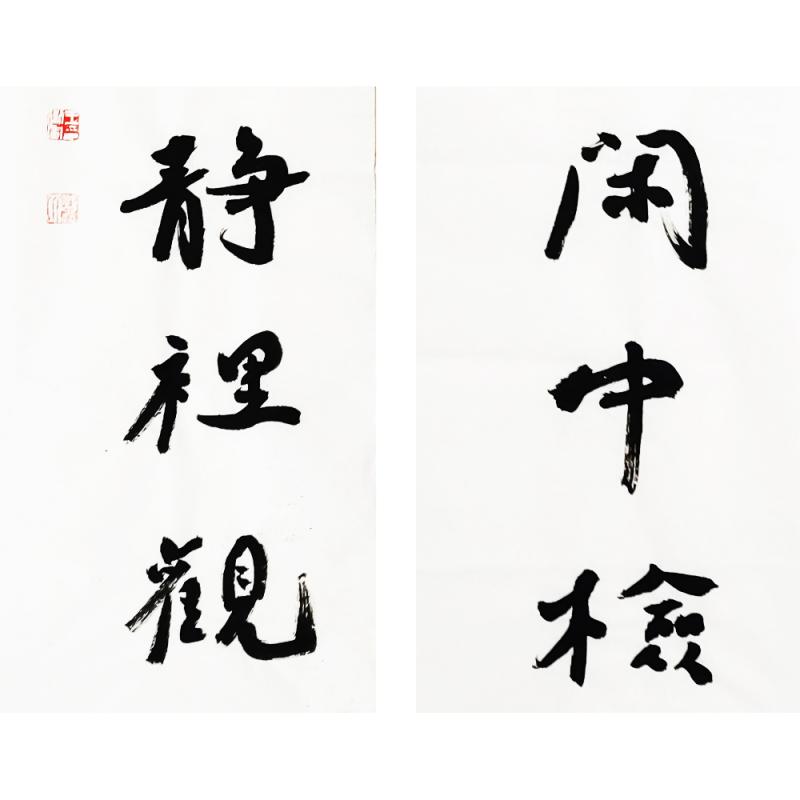 閑中檢
靜裡觀